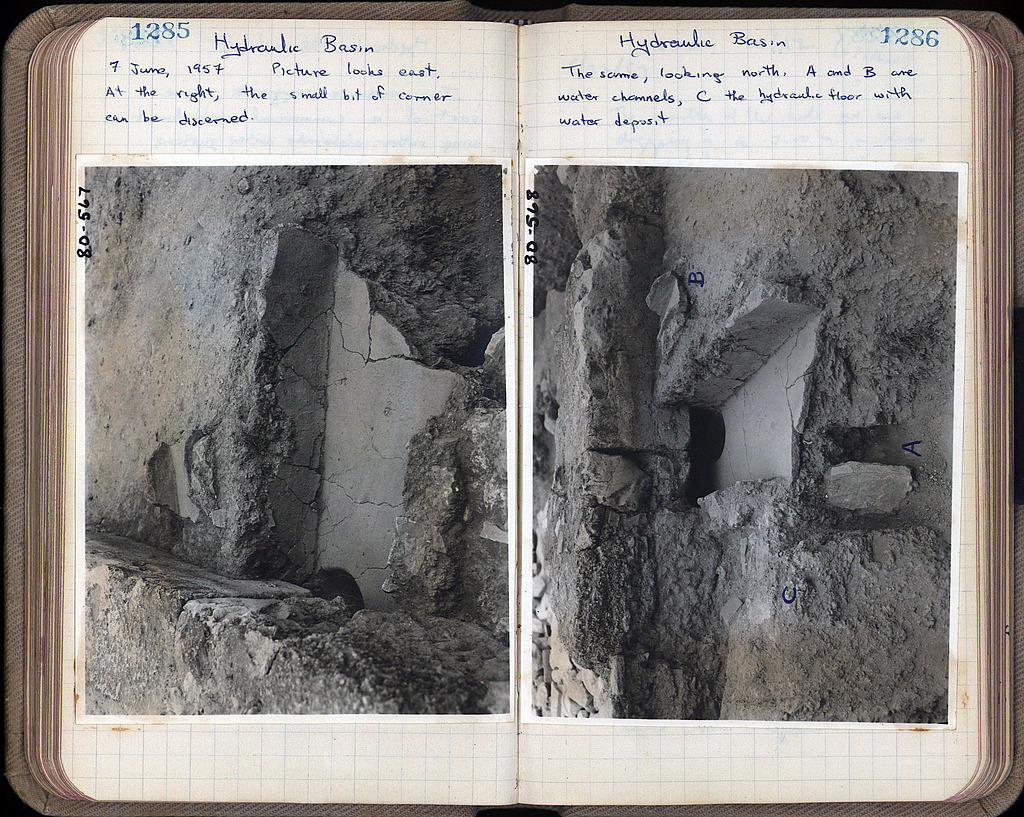 1285
Hydraulic Basin
7 June, 1957 Picture looks east.
At the right, the small bit of corner
can be discerned.
8D-567
Hydraulic Basin
1286
The same, looking north. A and B are
water channels, C the hydraulic floor with
water deposit
8D-568
B
A
C